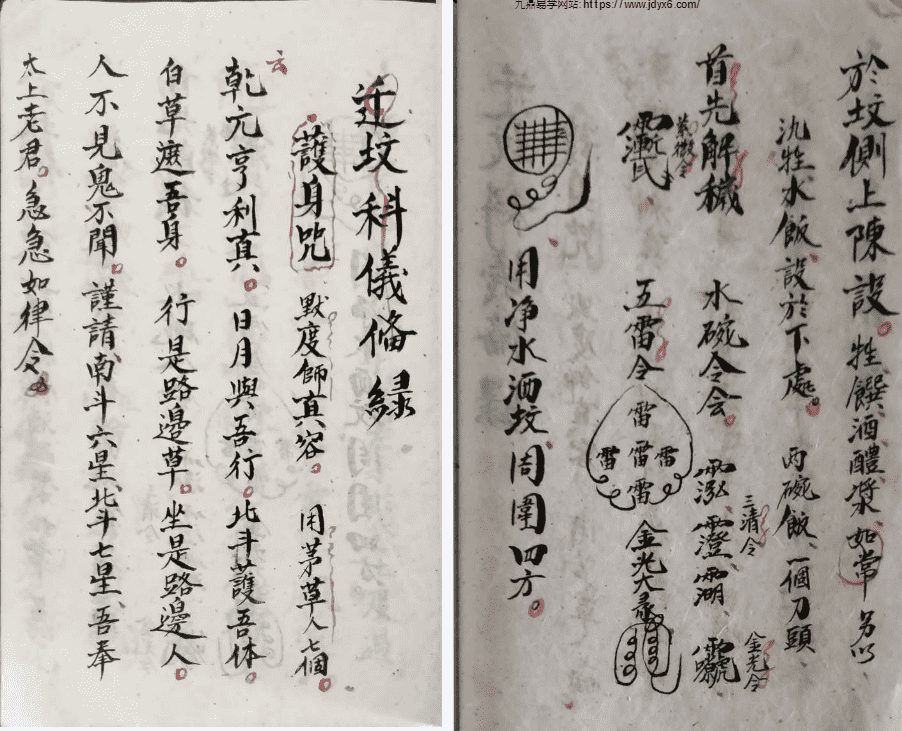 九鼎易学网站: https://www.jdyx6.com/
迁坟科儀俻緑
護身咒 默度師真容。用茅草人七個。
云
乾元亨利真。日月與吾行。北斗護吾体。
白草遮吾身。行是路邊草。坐是路邊人。
人不見鬼不聞。謹請南斗六星、北斗七星、吾奉
太上老君。急急如律令。
於坟側上陳設。牲饌酒醴漿如常 另以
牲水飯設於下處。两碗飯、一個刀頭
首先解穢 水碗令会。
三清令
金光令
紫微令
五雷令 雷 雷 雷 雷 雷 金光大
用净水洒坟周圍四方。